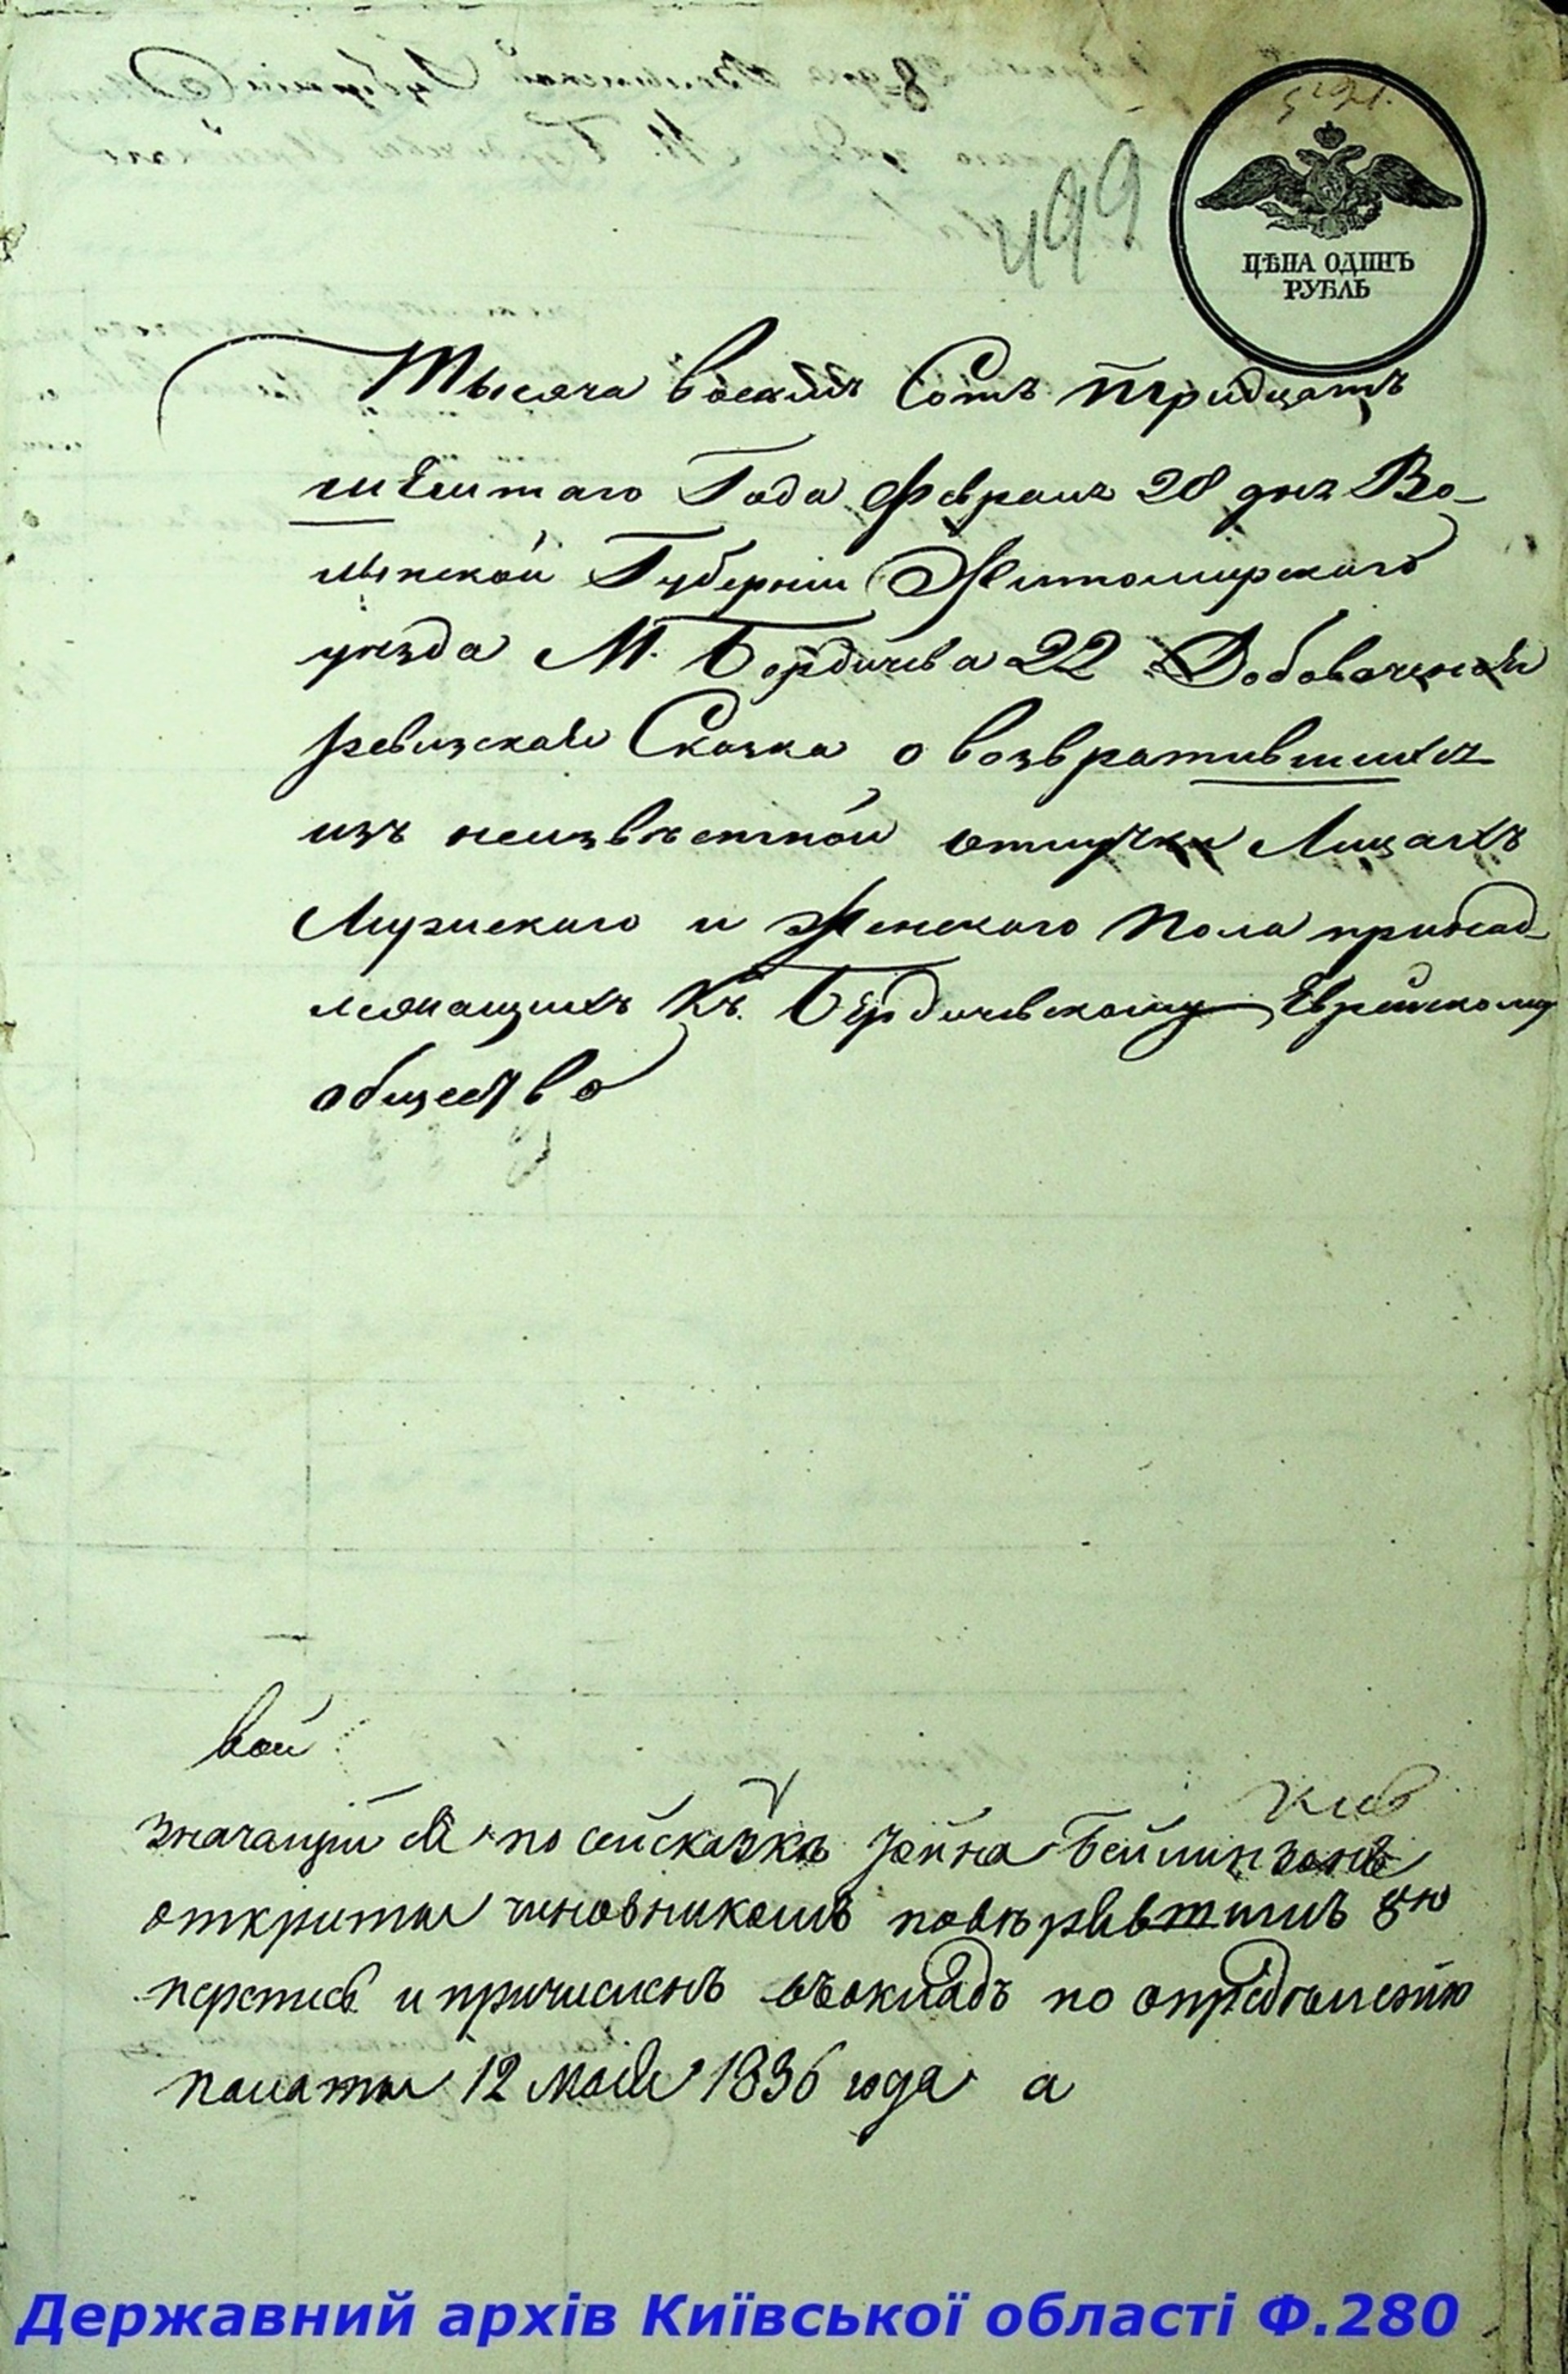 499
ЦѢНА ОДИНЪ
РУБЛЬ
Тысяча восемь Сотъ тридцать
шестаго Года Февраля 28 дня Во-
лынской Губерніи Житомирскаго
уѣзда М. Бердичева 22 Добавочная
ревизская Сказка о возвратившихся
изъ неизвѣстной отлучки Лицахъ
Мужескаго и Женскаго пола принад-
лежащихъ Къ Бердичевскому Еврейскому
обществу
вой
значащійся по сей сказкѣ
открыты чиновникомъ повѣрявшимъ 8ю
перепись и причисленъ въ окладъ по опредѣленію
палаты 12 мая 1836 года а
Державний архів Київської області Ф.280